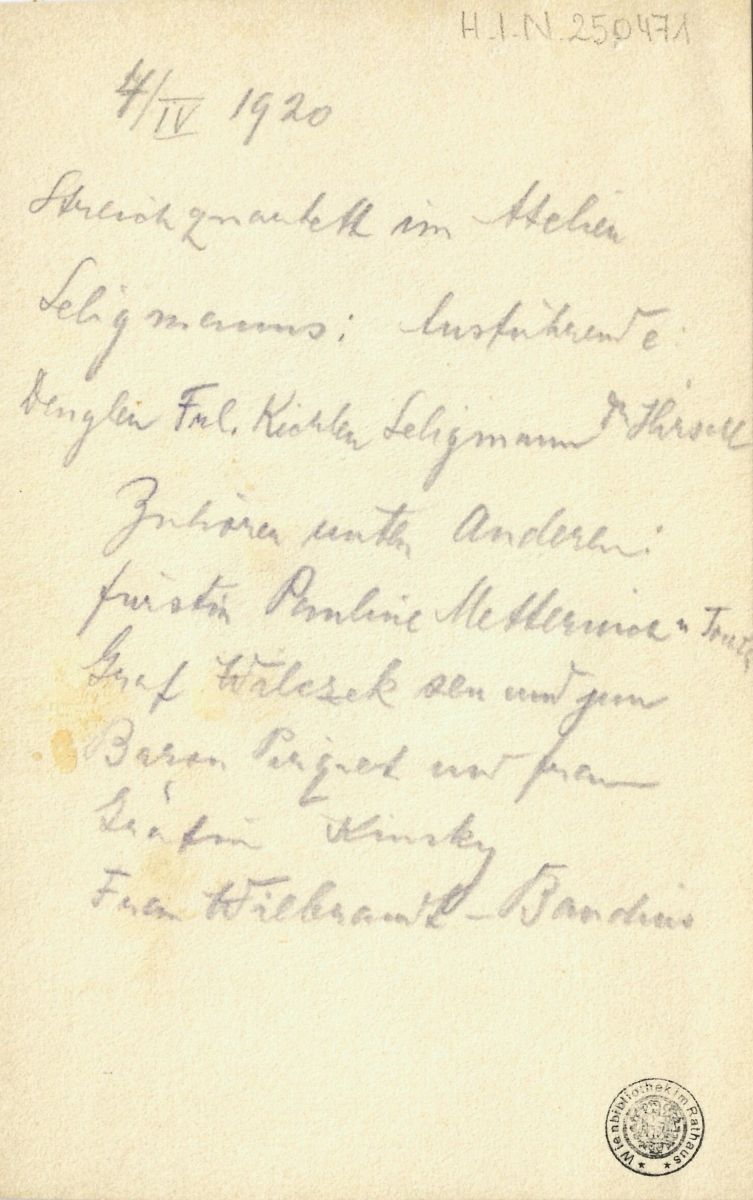 H.I.N. 250471
4/IV 1920
Streichquartett im Atelier
Seligmanns: Ausführende:
Dengler Frl. Kichler Seligmann Dr Hirsch
Zuhörer unter Anderen:
fürstin Pauline Metternich u
Graf Wilczek sen und jun
Baron Pirquet und frau
Gräfin Kinsky
Frau Wilbrandt-Baudius
Wienbibliothek im Rathaus